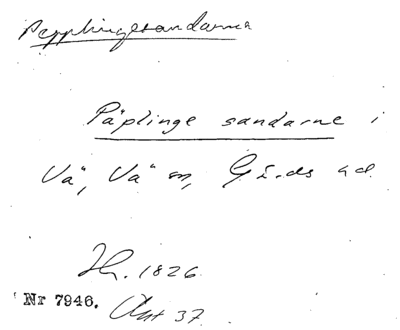 Pepplingesandarna
Päplinge sandarne i
Vä, Vä sn, Gärds hd.
1826.
Nr 7946. Akt 37.